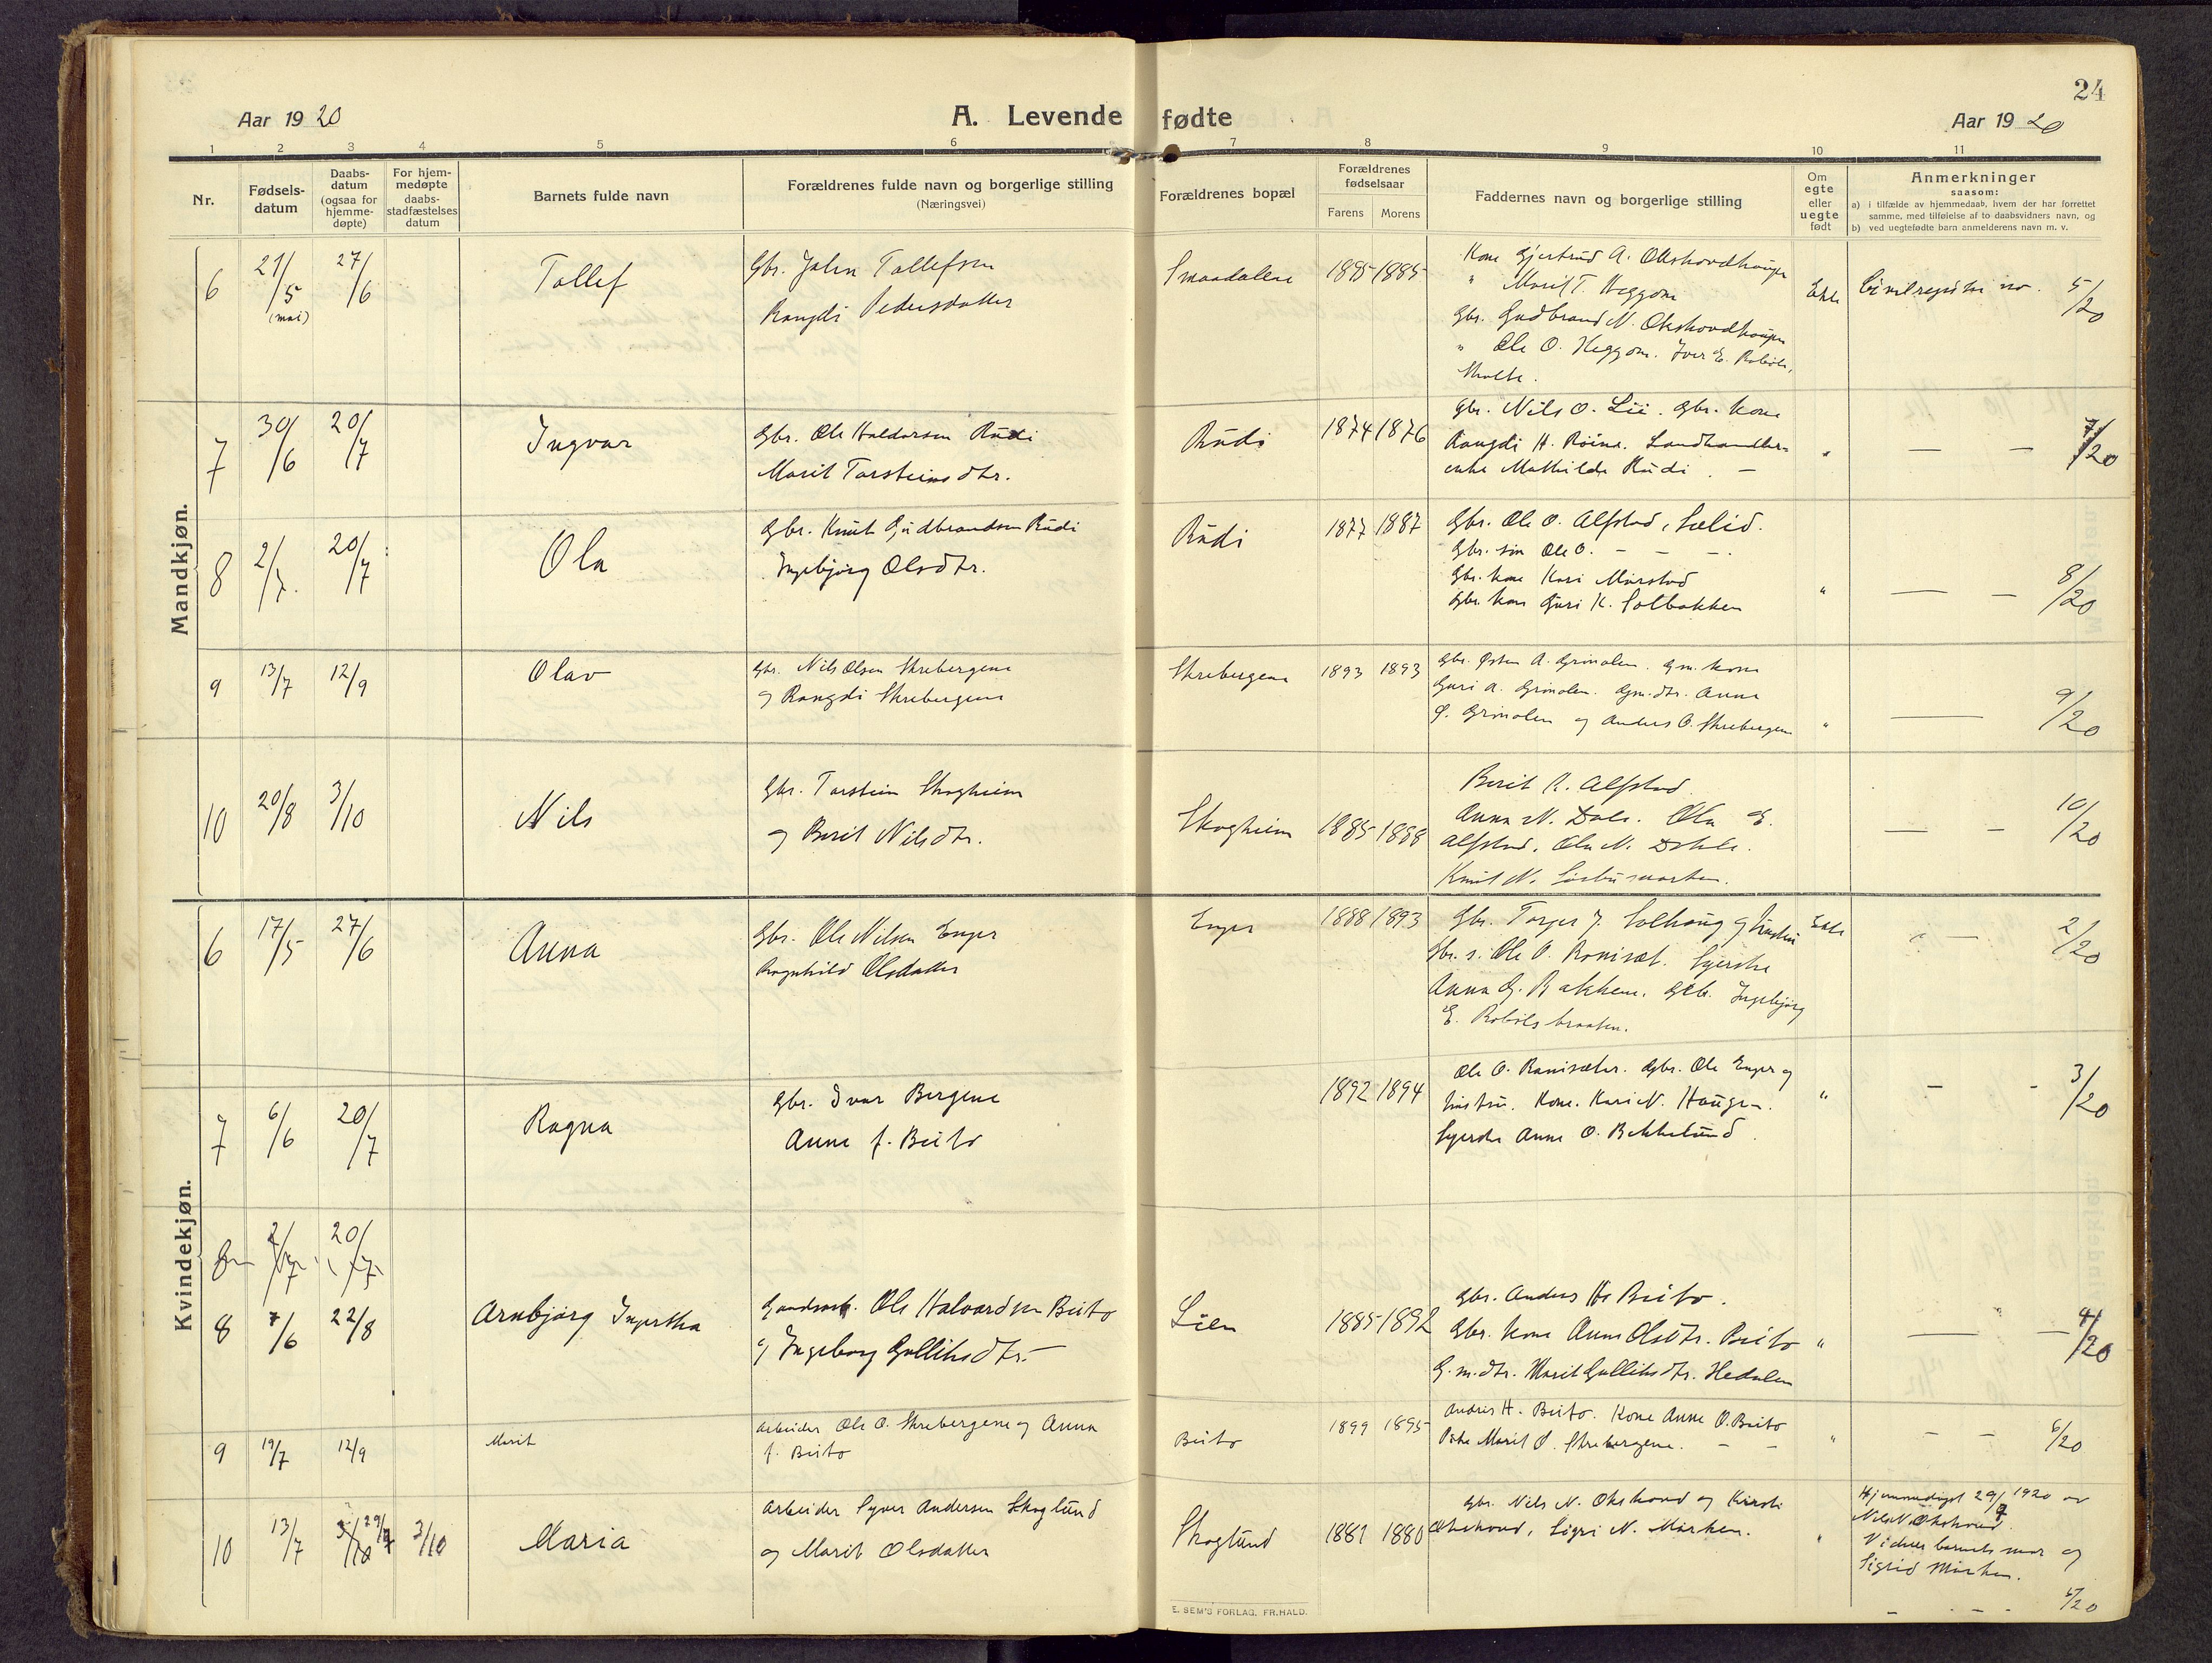 24
Aar 1920
A. Levende fødte
Aar 1920
1 2 3 4 5 6 7 8 9 10 11
Nr.
Fødsels-
datum
Daabs-
datum
(ogsaa for
hjemme-
døpte)
For hjem-
medøpte
daabs-
stadfæstelses
datum
Barnets fulde navn
Forældrenes fulde navn og borgerlige stilling
(Næringsvei)
Forældrenes bopæl
Forældrenes
fødselsaar
Farens Morens
Faddernes navn og borgerlige stilling
Om
egte
eller
uegte
født
Anmerkninger
saasom:
a) i tilfælde av hjemmedaab, hvem der har forrettet
samme, med tilføielse af to daabsvidners navn, og
b) ved uegtefødte barn anmelderens navn m. v.
Mandkjøn.
6 21/5 (mai) 27/6 Tollef
Gbr. John Tollefsen
Rangdi Pedersdatter
Smaadalene 1895 1885
Kone Gjertrud A. Okshovdhaugen
" Marit T. Heggom
Gbr. Gudbrand N. Okshovdhaugen
" Ole O. Heggom. Iver E. Robøle,
Ekte
Civilregister no. 5/20
7 30/6 20/7 Ingvar
Gbr. Ole Haldorsen Rudi
Marit Torsteinsdtr.
Rudi 1874 1876
Gbr. Nils O. Lii. Gbr. kone
Rangdi H. Röine. Landhandler-
enke Mathilde Rudi. —
" — — 7/20
8 2/7. 20/7 Ola
Gbr. Knut Gudbrandsen Rudi
Ingebjørg Olsdtr.
Rudi 1877 1887
Gbr. Ole O. Alfstad, Lelid.
Gbr. søn Ole O. — — —.
Gbr. kone Kari Mørstad
Gbr. kone Guri K. Solbakken
" — — 8/20
9 13/7 12/9 Olav
Gbr. Nils Olsen Skrebergene
og Rangdi Skrebergene
Skrebergene 1893 1893
Gbr. Østen A. Grinolen. Gm. kone
Guri A. Grinolen. Gm.dtr. Anna
Ø. Grinolen og Anders O. Skrebergene
" — 9/20
10 20/8 3/10 Nils
Gbr. Torstein Skogheim
og Berit Nilsdtr.
Skogheim 1885 1888
Berit K. Alfstad
Anna N. Dale. Ola E.
Alfstad. Ola N. Dahle.
Knut N.
— — 10/20
Kvindekjøn.
6 17/5 27/6 Anna
Gbr. Ole Nilsen Enger
Ragnhild Olsdatter
Enger 1888 1893
Gbr. Torger J. Solhaug og hustru
Gbr. s. Ole O. Ranisæt. Syerske
Anna G. Bakkene. Gbr. Ingebjørg
E. Robølsbraaten.
Ekte
" — 2/20
7 6/6 20/7 Ragna
Gbr. Ivar Bergene
Anne f. Beito
1892 1894
Ole O. Ranisæter. Gbr. Ole Enger og
hustru. Kone. Kari N. Haugen.
Syerske Anne O. Bekkelund.
" — - 3/20
8 2/7 20/7
8 7/6 22/8 Arnbjørg Ingertha
Gaardsarb. Ole Halvardsen Beito
og Ingeborg Gulliksdtr.
Lien 1885 1892
Gbr. Anders H. Beito.
Gbr. kone Anne Olsdtr. Beito
G.m.dtr. Marit Gulliksdtr. Hedalen
" — — 4/20
9 19/7 12/9 Marit
Arbeider Ole O. Skrebergene og Anna
f. Beito
Beito 1899 1895
Andris H. Beito. Kone Anne O. Beito
Pike Marit O. Skrebergene. — —
" — — 6/20
10 13/7 3/10 29/7 3/10 Maria
Arbeider Syver Andersen Skoglund
og Marit Olsdatter
Skoglund 1881 1880
Gbr. Nils N. Okshovd og Kirsti
Okshovd, Sigri N. Mörken.
"
Hjemmedøpt 29/7 1920 av
Nils N. Okshovd.
Vidner barnets mor og
Sigrid Mörken.
— . — . — 5/20
E. SEM'S FORLAG, FR.HALD.